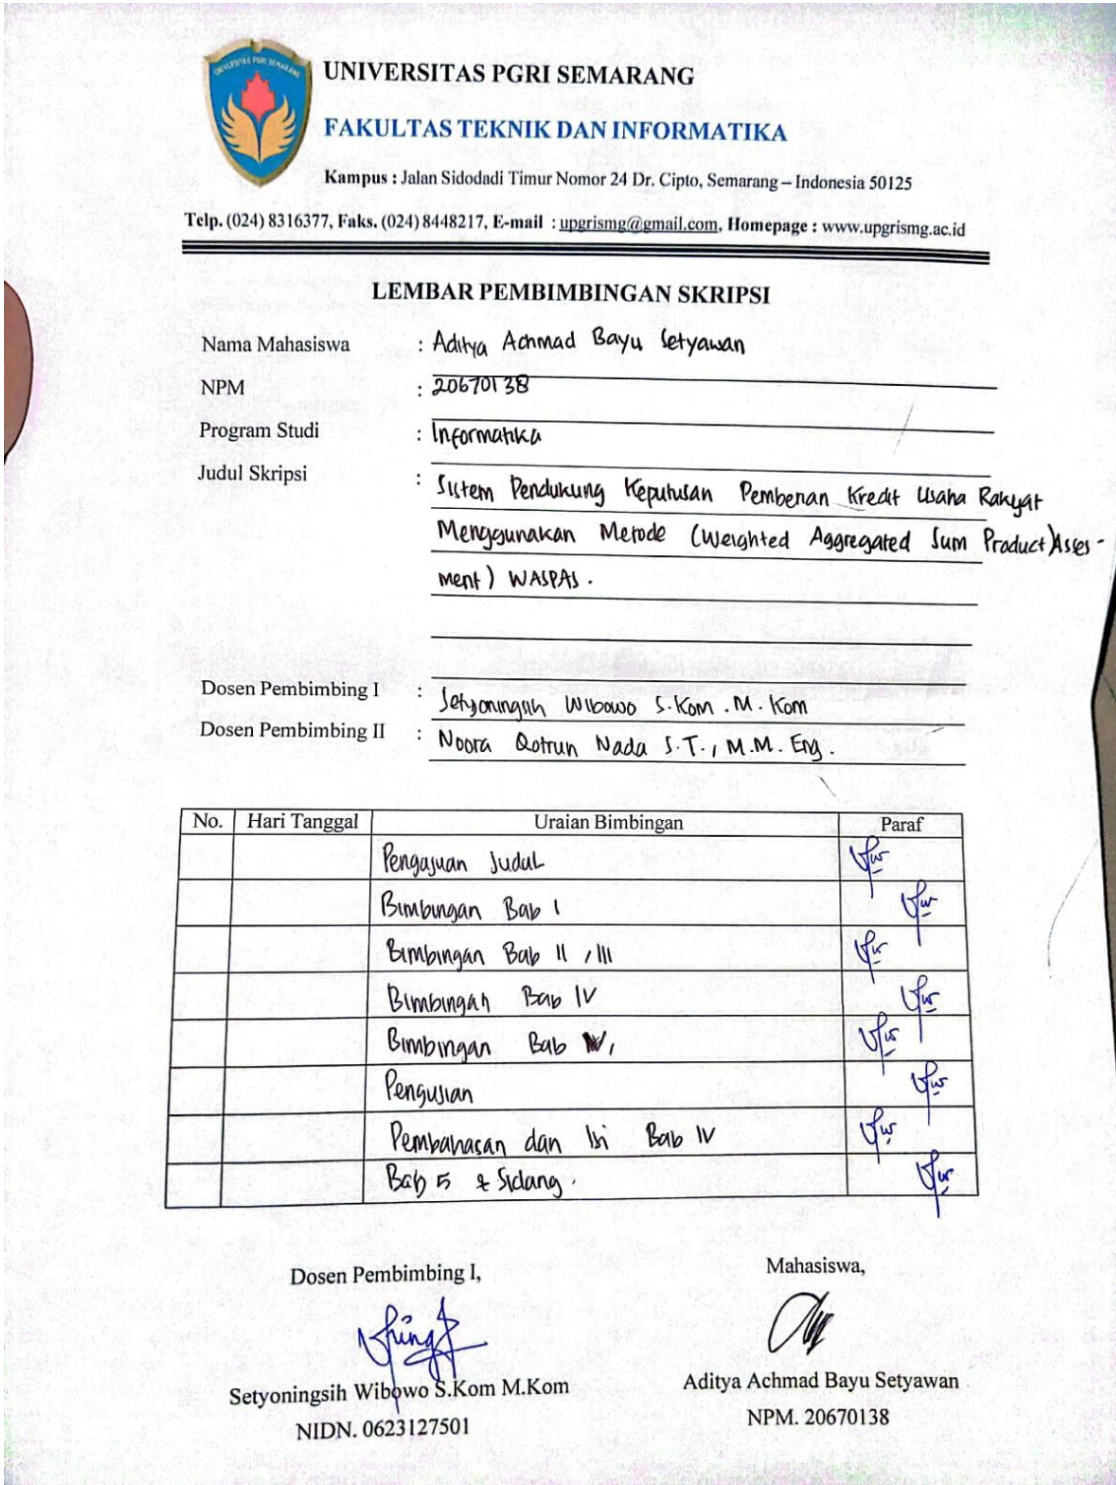 UNIVERSITAS PGRI SEMARANG
UNIVERSITAS PGRI SEMARANG
FAKULTAS TEKNIK DAN INFORMATIKA
Kampus : Jalan Sidodadi Timur Nomor 24 Dr. Cipto, Semarang – Indonesia 50125
Telp. (024) 8316377, Faks. (024) 8448217, E-mail : upgrismg@gmail.com, Homepage : www.upgrismg.ac.id
LEMBAR PEMBIMBINGAN SKRIPSI
Nama Mahasiswa : Aditya Achmad Bayu Setyawan
NPM : 20670138
Program Studi : Informatika
Judul Skripsi : Sistem Pendukung Keputusan Pemberian Kredit Usaha Rakyat
Menggunakan Metode (Weighted Aggregated Sum Product) Asses-
ment) WASPAS.
Dosen Pembimbing I : Setyoningsih Wibowo S.Kom . M. Kom
Dosen Pembimbing II : Noora Qotrun Nada S.T., M.M. Eng.
No. Hari Tanggal Uraian Bimbingan Paraf
Pengajuan Judul
Bimbingan Bab I
Bimbingan Bab II , III
Bimbingan Bab IV
Bimbingan Bab
Pengujian
Pembahasan dan Isi Bab IV
Bab 5 & Sidang.
Dosen Pembimbing I, Mahasiswa,
Setyoningsih Wibowo S.Kom M.Kom Aditya Achmad Bayu Setyawan
NIDN. 0623127501 NPM. 20670138